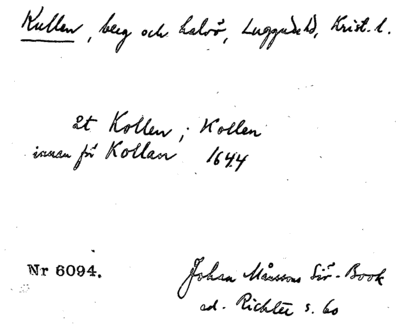 Kullen, berg och halvö, Luggude hd, Krist. l.
2t Kollen; Kollen
innan för Kollan 1644
Nr 6094.
Johan Månssons Siö-Book
ed. Richter s. 60